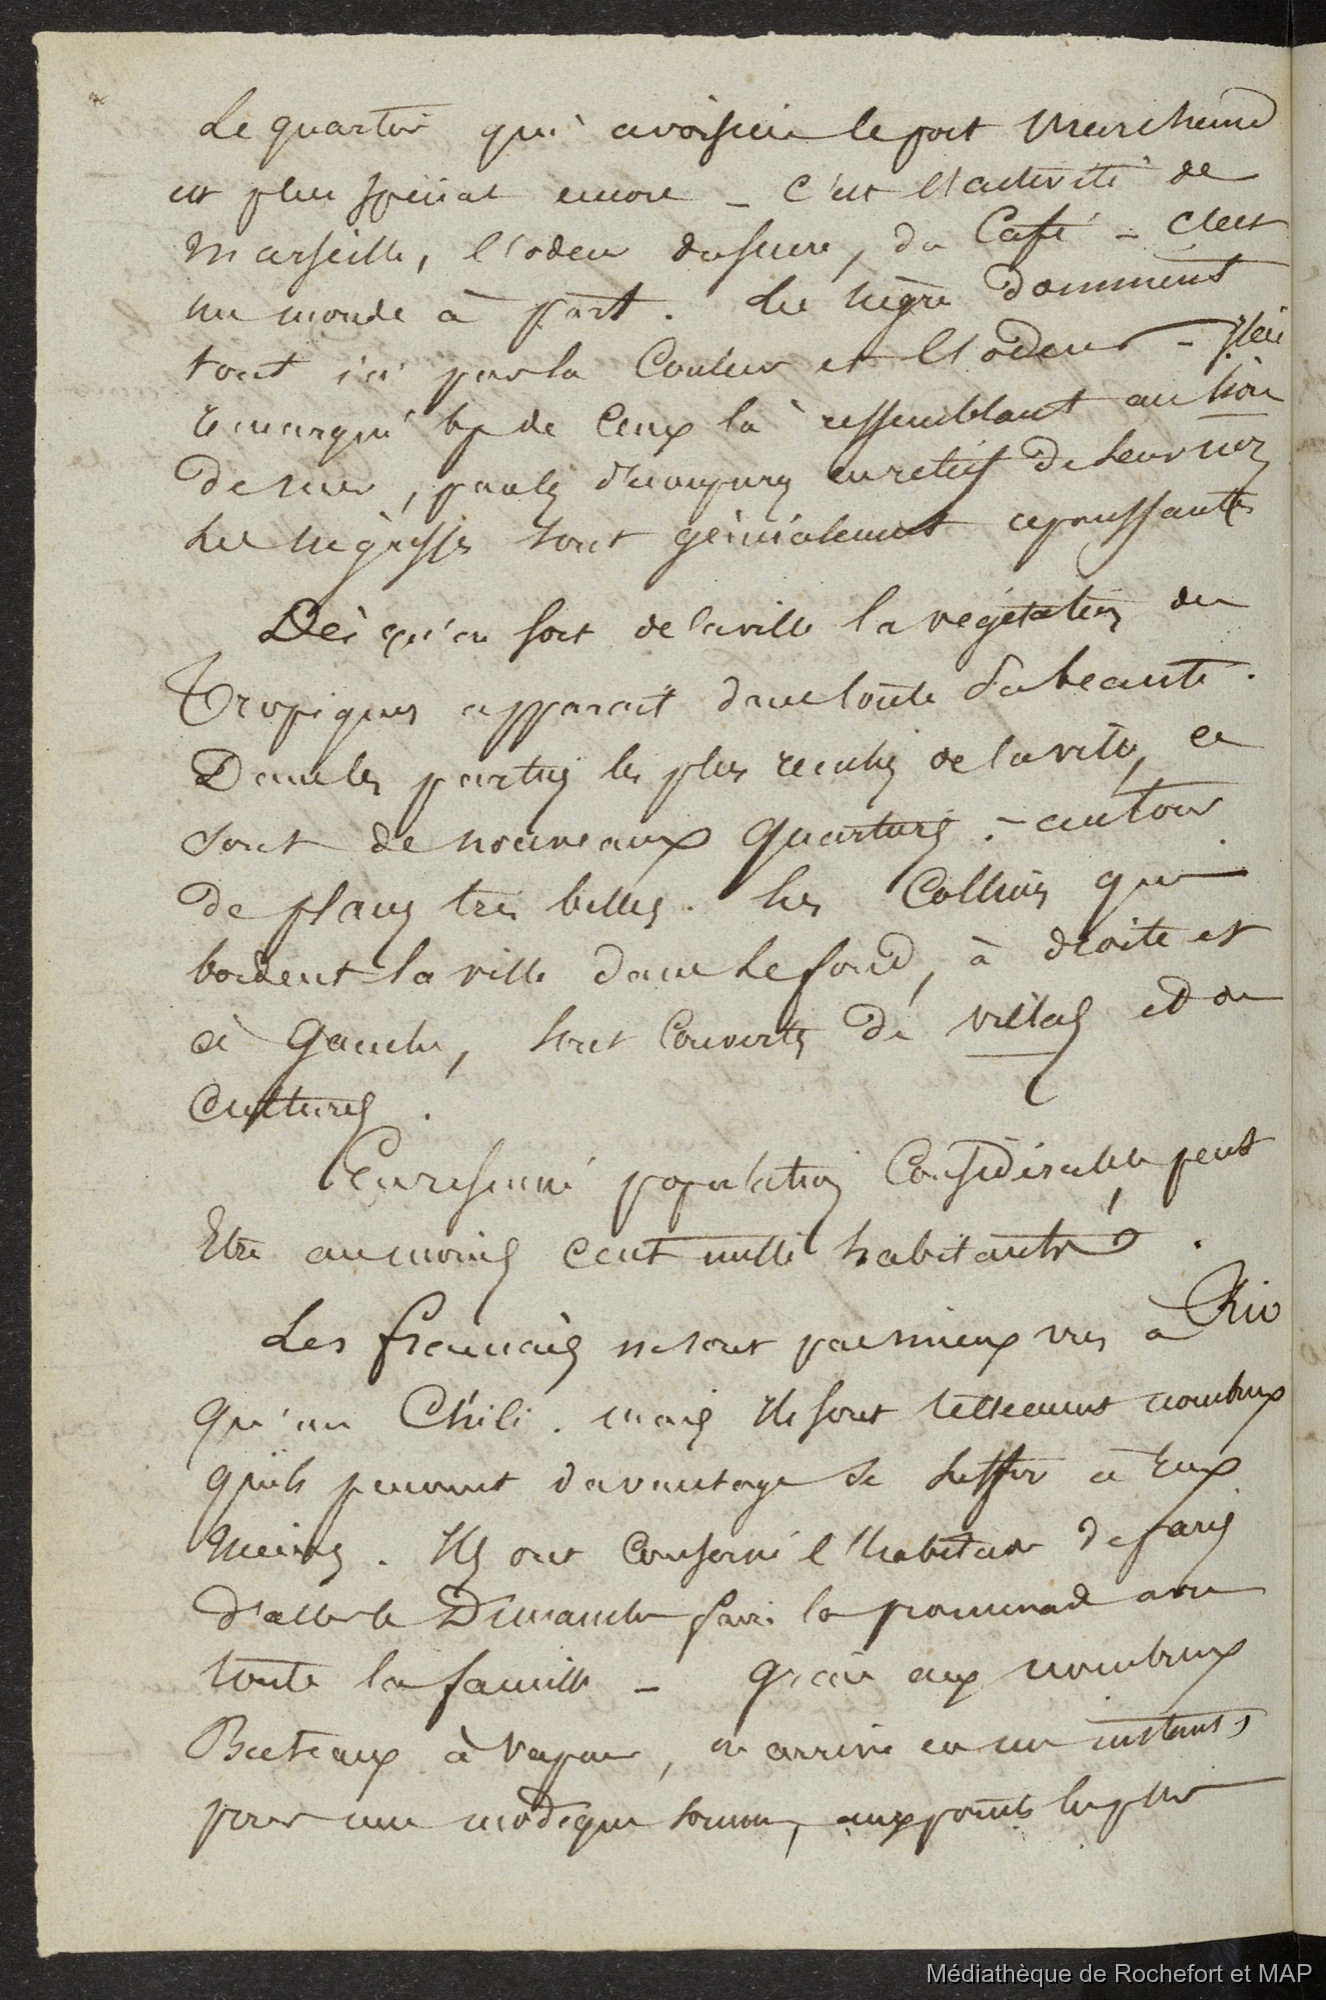 Le quartier qui avoisine le port Marchand
est plus spécial encore _ c'est l'activité de
Marseille, l'odeur du sucre, du Café - C'est
un monde à part. Les nègres dominent
tout ici par la Couleur et l'odeur - J'ai
remarqué bp de ceux là ressemblant au lion
de mer,
Les négresses sont généralement repoussantes
Dès qu'on sort de la ville la végétation des
Tropiques apparait dans toute sa beauté.
Dans les parties les plus reculés de la ville, ce
sont de nouveaux quartiers. - autour
de places très belles. Les Collines qui
bordent la ville dans le fond, à droite et
à Gauche, sont Couvertes de villas et de
Cultures.
En résumé population Considérable, peut
Etre au moins cent mille habitants.
Les français ne sont pas mieux vus à Rio
qu'au Chili. mais Ils sont tellement nombreux
qu'ils peuvent davantage se suffir à Eux
mêmes. Ils ont Conservé l'habitude de Paris
d'aller le Dimanche faire la promenade avec
toute la famille _ grâce aux nombreux
Bateaux à vapeur, on arrive en un instant,
pour une modique somme, aux points les plus
Médiathèque de Rochefort et MAP